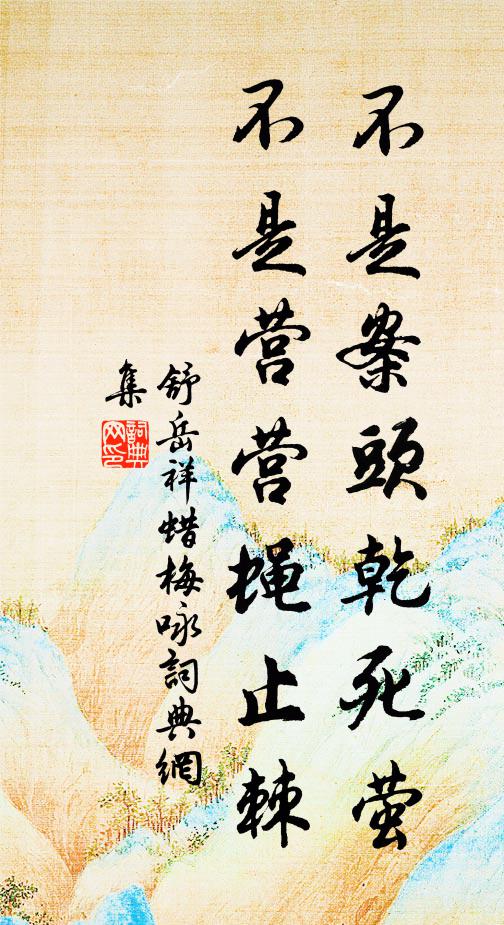 不是案頭乾死萤
不是营营蝇止棘
舒岳祥蜡梅咏詞典網
集
詞典网印